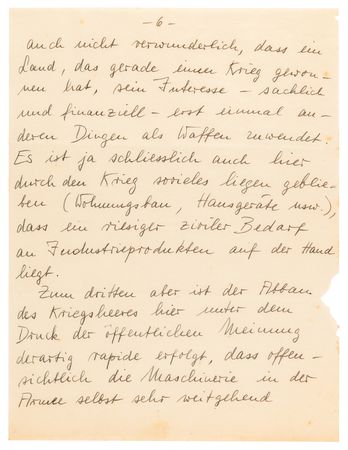 - 6 -
auch nicht verwunderlich, dass ein
Land, das gerade einen Krieg gewon-
nen hat, sein Interesse - sachlich
und finanziell - erst einmal an-
deren Dingen als Waffen zuwendet.
Es ist ja schliesslich auch hier
durch den Krieg sovieles liegen geblie-
ben (Wohnungsbau, Hausgeräte usw.),
dass ein riesiger ziviler Bedarf
an Industrieprodukten auf der Hand
liegt.
Zum dritten aber ist der Abbau
des Kriegsheeres hier unter dem
Druck der öffentlichen Meinung
derartig rapide erfolgt, dass offen-
sichtlich die Maschinerie in der
Armee selbst sehr weitgehend